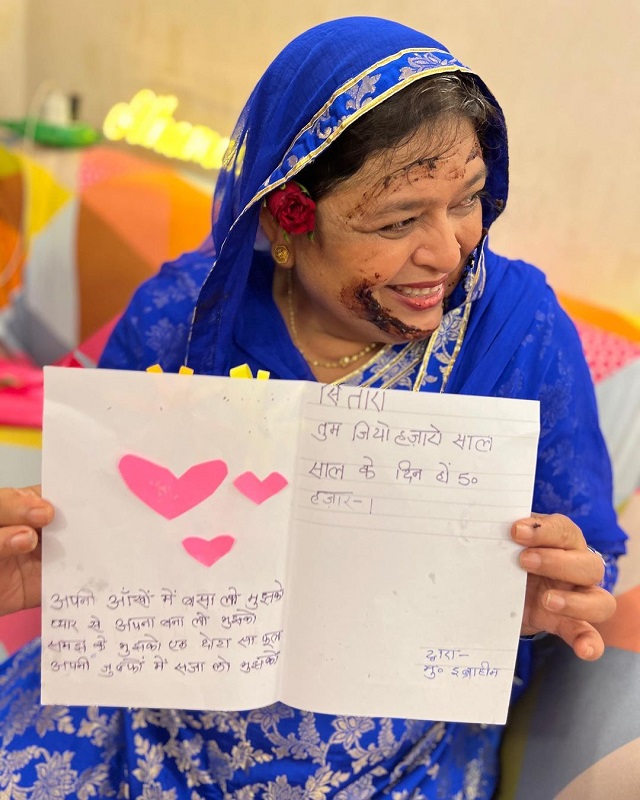 सितारा
तुम जियो हज़ारो साल
साल के दिन हों ५०
हज़ार-।
अपनी आँखों में बसा लो मुझको
प्यार से अपना बना लो मुझको
समझ के मुझको एक छोटा सा फूल
अपनी जुल्फों में सजा लो मुझको
द्वारा-
मु० इब्राहीम